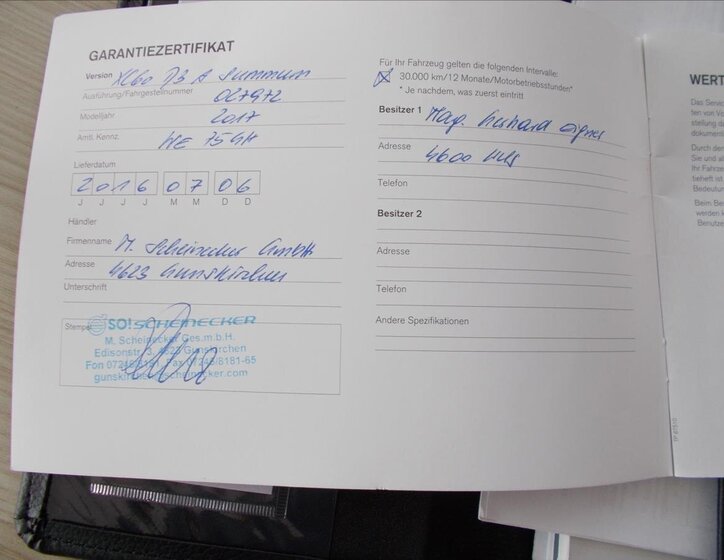 GARANTIEZERTIFIKAT
Version XC60 D3 A Summum
Ausführung/Fahrgestellnummer 027972
Modelljahr 2017
Amtl. Kennz. WE 759H
Lieferdatum
2016 07 06
J J J J M M D D
Händler
Firmenname M. Scheinecker GmbH
Adresse 4623 Gunskirchen
Unterschrift
Stempel
SO! SCHEINECKER
M. Scheinecker Ges.m.b.H.
Edisonstr. 3, 4623 Gunskirchen
Fon Fax 07246/8181-65
scheinecker.com
Für Ihr Fahrzeug gelten die folgenden Intervalle:
30.000 km/12 Monate/Motorbetriebsstunden*
* Je nachdem, was zuerst eintritt
Besitzer 1 Mag. Gerhard
Adresse 4600 Wels
Telefon
Besitzer 2
Adresse
Telefon
Andere Spezifikationen
TP 67510
WERT
Das Serv
ten von Vo
stellung d
dokument
Durch den
Sie und al
Ihr Fahrze
tieheft ist
Bedeutun
Beim Be
werden
Benutze